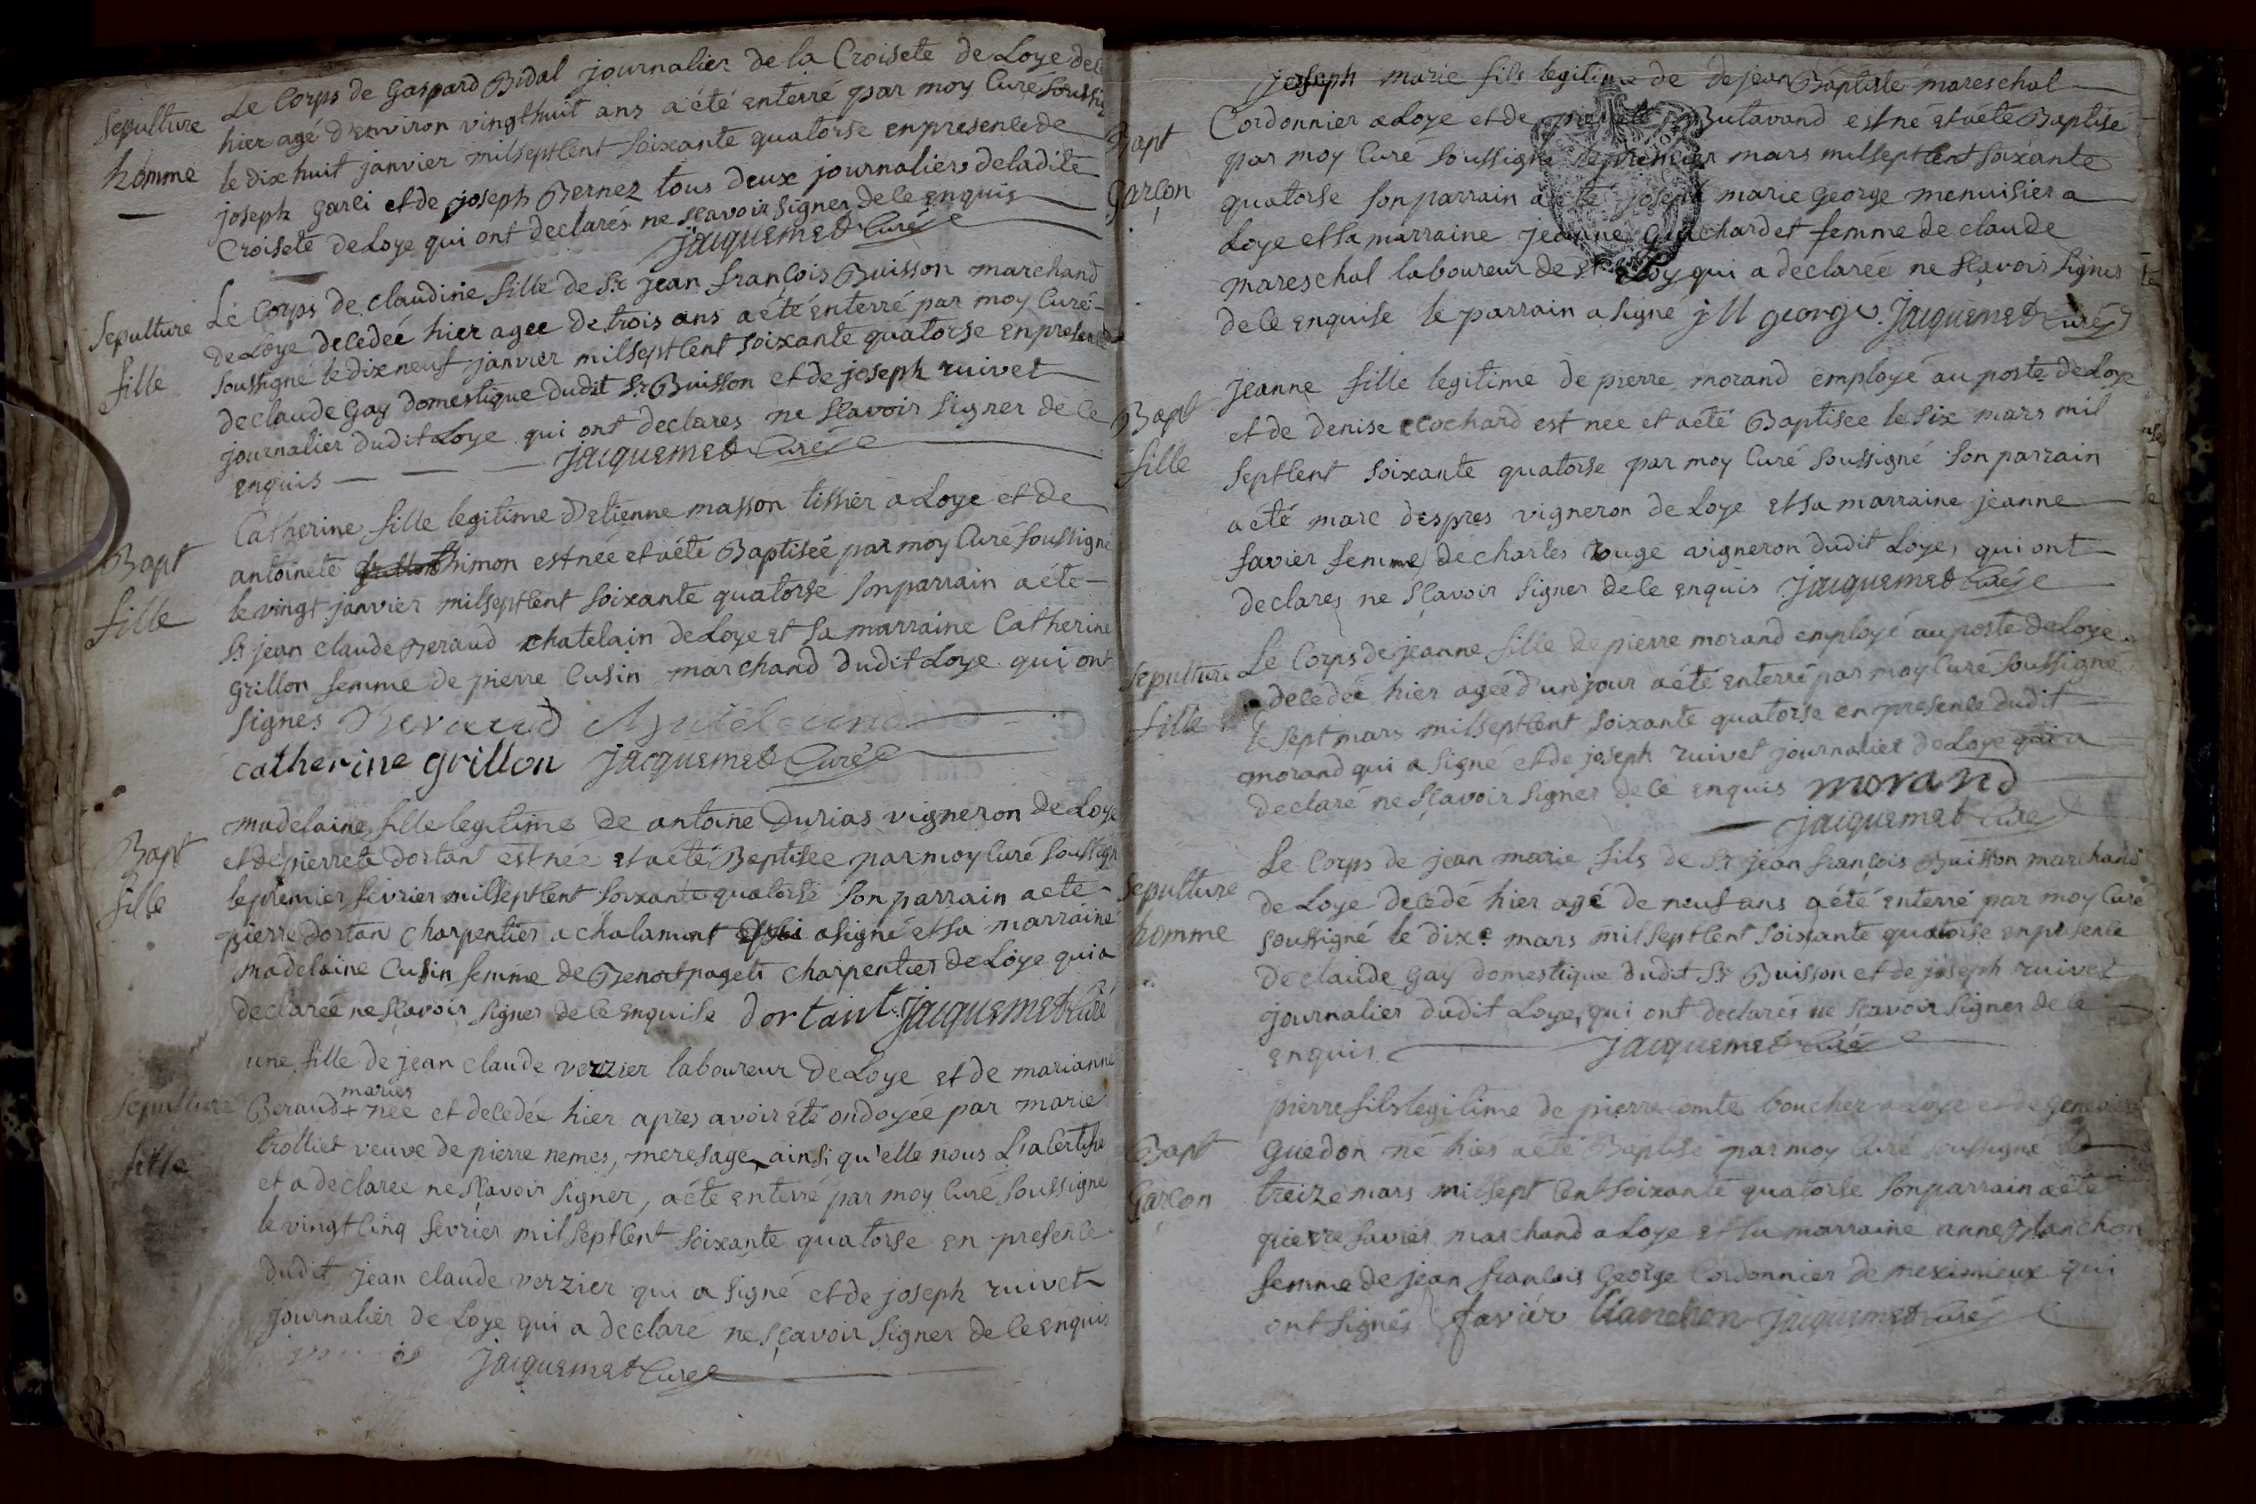 sepulture
homme
Le Corps de Gaspard Bidal journalier de la Croisete de Loye dec
hier agé d'environ vingt huit ans a été enterré par moy Curé soussig
le dix huit janvier milseptcent soixante quatorse en presence de
joseph Garci et de joseph Bernez tous deux journaliers de ladite
Croisete de Loye qui ont declarés ne scavoir signer de ce enquis
jacquemet Curé
sepulture
fille
Le Corps de claudine fille de Sr jean françois Buisson marchand
de Loye decedée hier agee de trois ans a été enterré par moy Curé
soussigné le dix neuf janvier milseptcent soixante quatorse en presence
de claude Gay domestique dudit Sr Buisson et de joseph ruivet
journalier dudit Loye qui ont declares ne scavoir signer de ce
enquis jacquemet Curé
Bapt
fille
Catherine fille legitime d'etienne masson tissier a Loye et de
antoinete thimon est née et a été Baptisée par moy Curé soussigné
le vingt janvier milseptcent soixante quatorse son parrain a été
Sr jean claude Beraud chatelain de Loye et sa marraine Catherine
Grillon femme de pierre Cusin marchand dudit Loye qui ont
signes Beraud
catherine grillon jacquemet Curé
Bapt
fille
madelaine fille legitime de antoine Durias vigneron de Loye
et de pierrete dortan est née et a été Baptisee par moy Curé soussigne
le premier fevrier milseptcent soixante quatorse son parrain a été
pierre dortan charpentier a chalamont qui a signé et sa marraine
madelaine Cusin femme de Benoit pageti charpentier de Loye qui a
declarée ne scavoir signer de ce enquise dortant jacquemet Curé
sepulture
fille
une fille de jean claude verzier laboureur de Loye et de marianne
maries
Beraud + née et decedée hier apres avoir été ondoyée par marie
trolliet veuve de pierre nemes, meresage, ainsi qu'elle nous l'a certifié
et a declaree ne scavoir signer, a été enterré par moy Curé soussigné
le vingt cinq fevrier milseptcent soixante quatorse en presence
dudit jean claude verzier qui a signé et de joseph ruivet
journalier de Loye qui a declaré ne scavoir signer de ce enquis
jacquemet Curé
Bapt
garçon
joseph marie fils legitime de de jean Baptiste mareschal
Cordonnier a Loye et de Butavand est né et a été Baptisé
par moy Curé soussigné le premier mars milseptcent soixante
quatorse son parrain a été joseph marie George menuisier a
Loye et sa marraine jeanne Guichardet femme de claude
mareschal laboureur de St Eloy qui a declarée ne scavoir signer
de ce enquise le parrain a signé j M george jacquemet Curé
Bapt
fille
jeanne fille legitime de pierre morand employé au poste de Loye
et de denise cochard est nee et a été Baptisee le six mars mil
septcent soixante quatorse par moy Curé soussigné son parrain
a été marc despres vigneron de Loye et sa marraine jeanne
favier femme de charles rouge vigneron dudit Loye, qui ont
declares ne scavoir signer de ce enquis jacquemet Curé
sepulture
fille
Le Corps de jeanne fille de pierre morand employé au poste de Loye
decedée hier agée d'un jour a été enterré par moy Curé soussigné
le sept mars milseptcent soixante quatorse en presence dudit
morand qui a signé et de joseph ruivet journalier de Loye qui a
declaré ne scavoir signer de ce enquis morand
jacquemet Curé
sepulture
homme
Le Corps de jean marie fils de Sr jean françois Buisson marchand
de Loye decedé hier agé de neuf ans a été enterré par moy Curé
soussigné le dixe mars milseptcent soixante quatorse en presence
de claude Gay domestique dudit Sr Buisson et de joseph ruivet
journalier dudit Loye, qui ont declarés ne scavoir signer de ce
enquis jacquemet Curé
Bapt
Garçon
pierre fils legitime de pierre comte boucher a Loye et de Genevieve
Guedon né hier a été Baptisé par moy Curé soussigné le
treize mars milsept cent soixante quatorse son parrain a été
pierre favier marchand a Loye et sa marraine anne Blanchon
femme de jean francois George Cordonnier de meximieux qui
ont signés favier blanchon jacquemet Curé